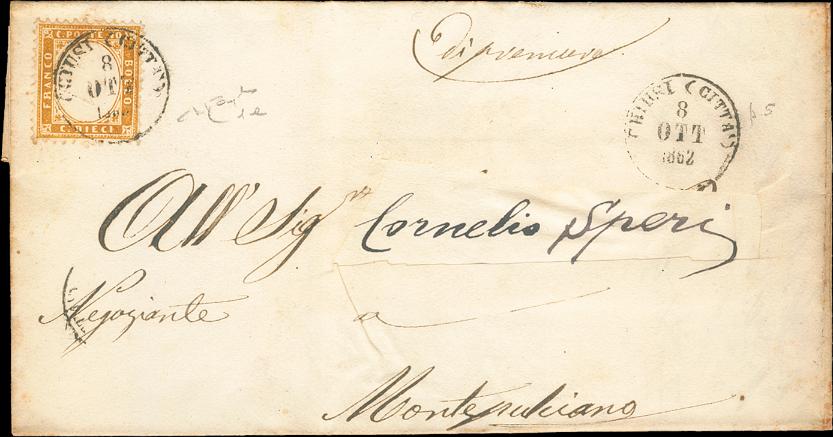 C. POSTE
FRANCO
BOLLO
C. DIECI
CHIUSI (CITTÀ)
8
OTT
CHIUSI (CITTÀ)
8
OTT
1862
All' Sigr Cornelio Speri
Negoziante
a
Montepulciano